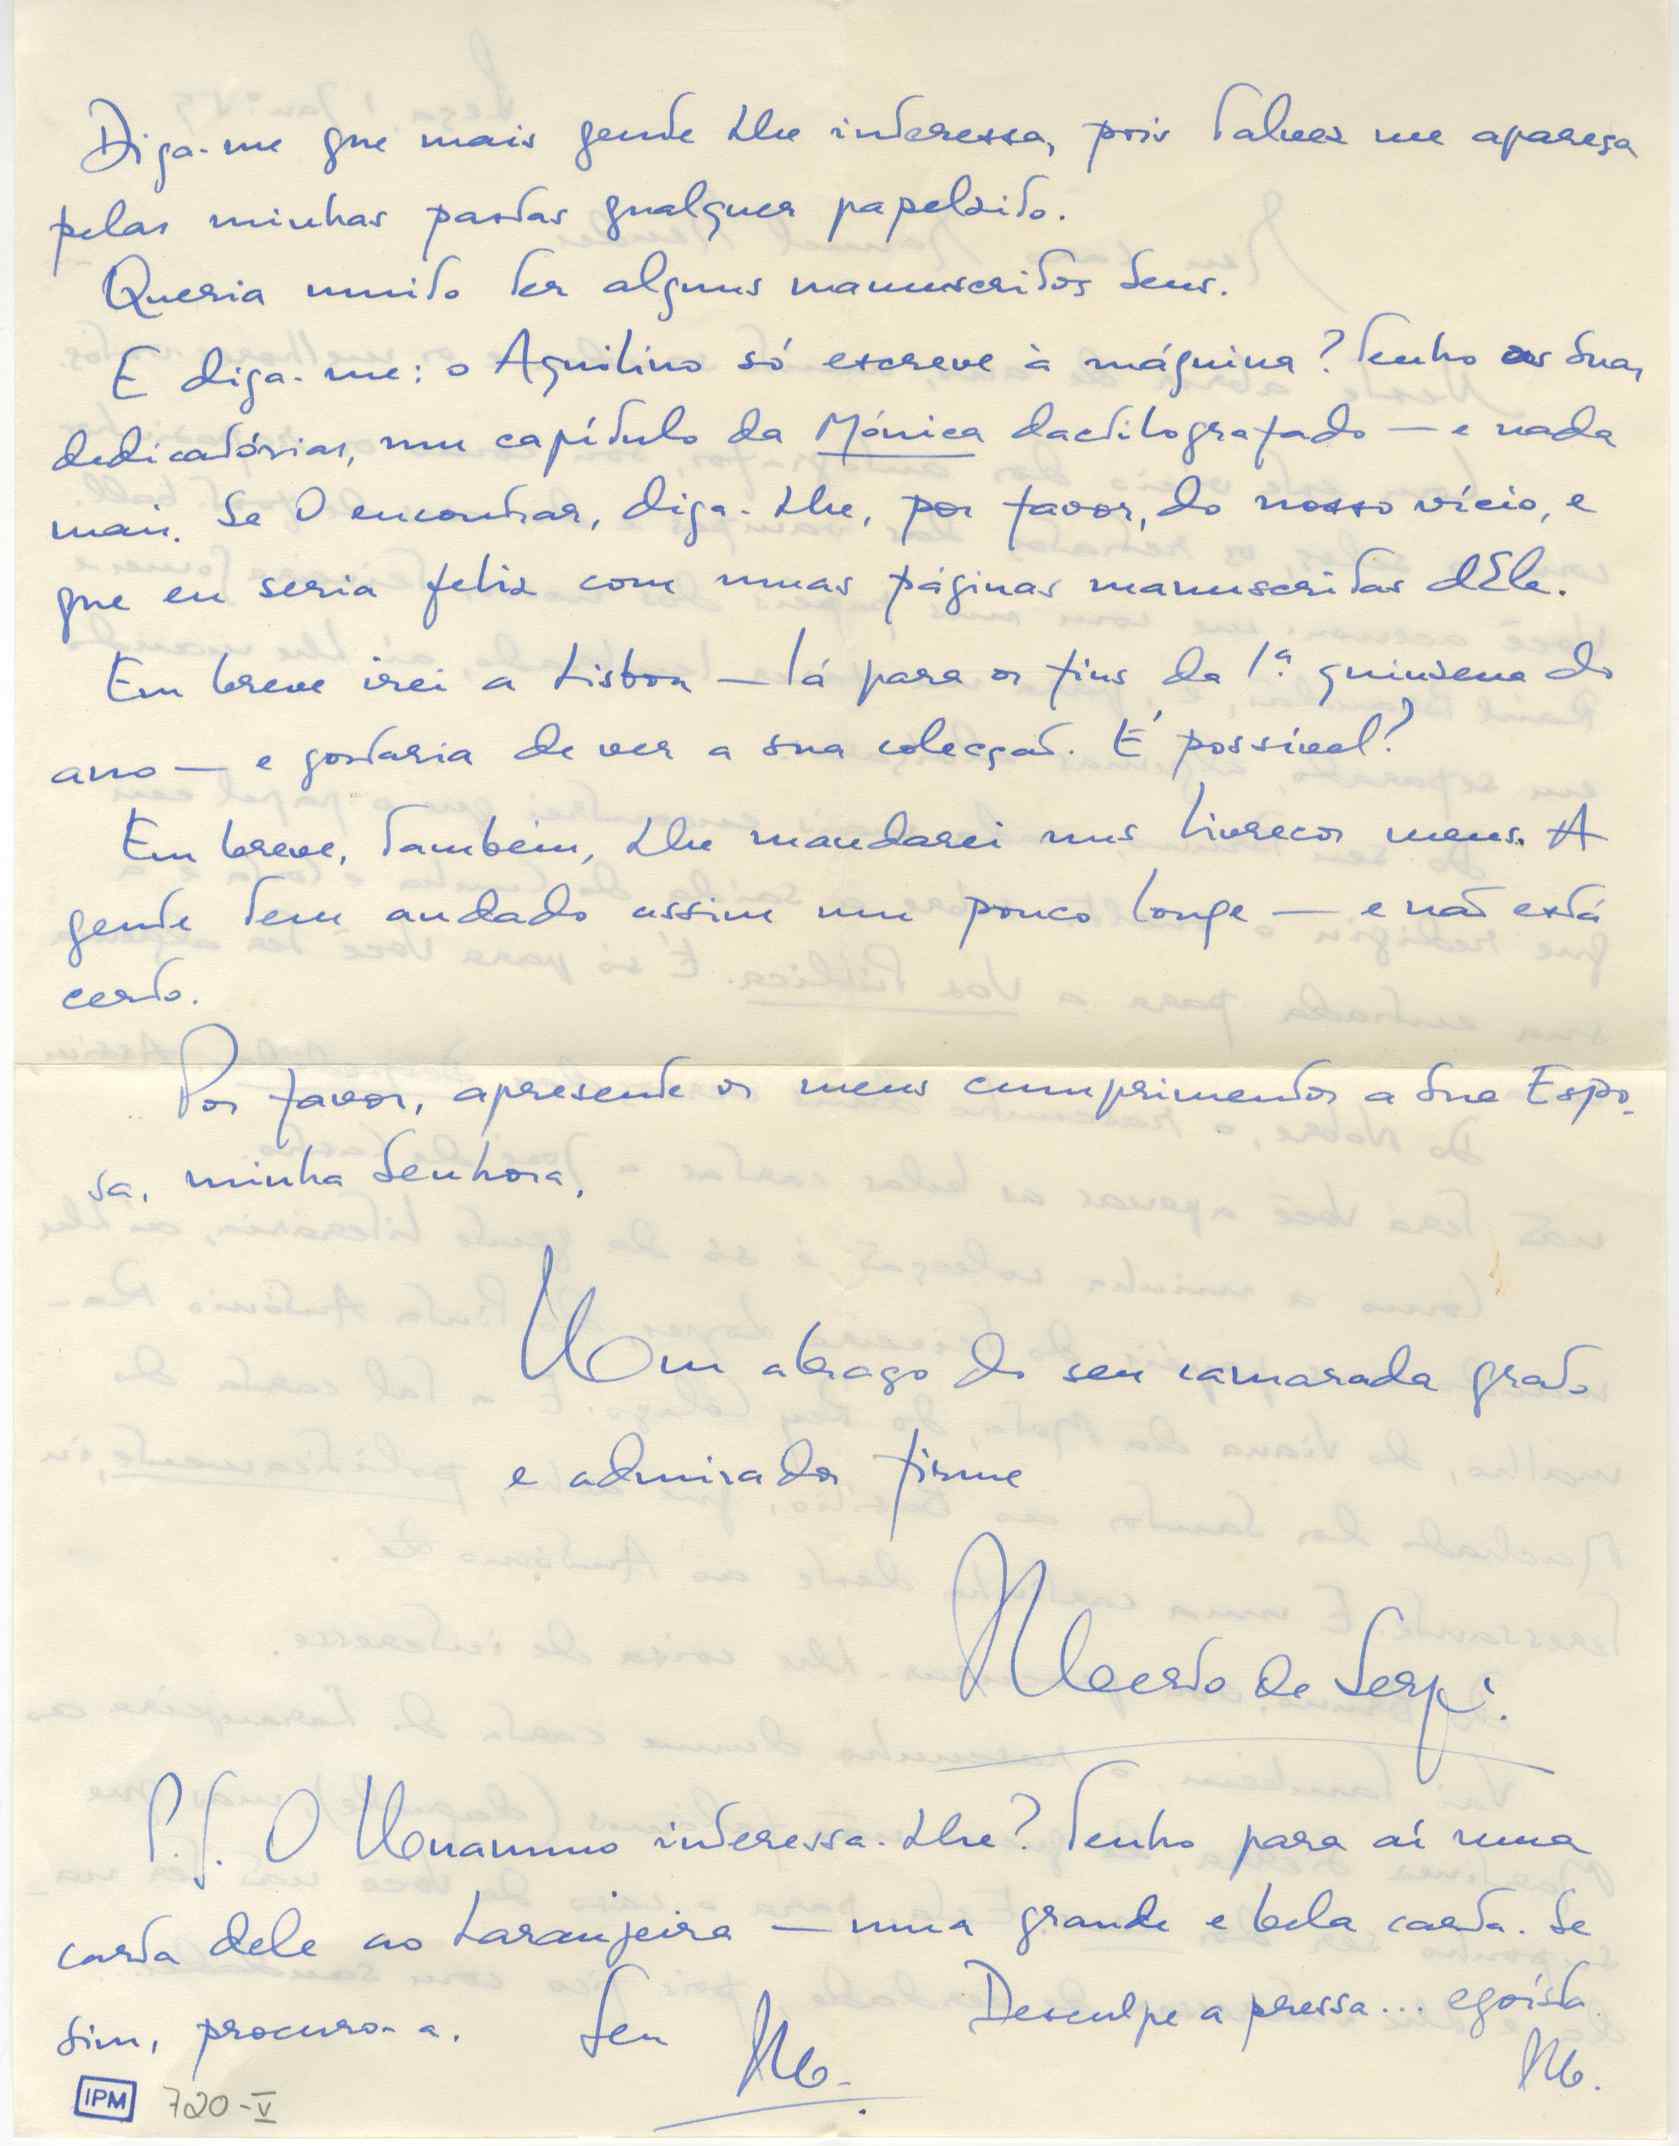 Diga-me que mais gente Lhe interessa, pois talvez me apareça
pelas minhas pastas qualquer papelzito.
Queria muito ter alguns manuscritos Seus.
E diga-me: o Aquilino só escreve à máquina? Tenho as Suas
dedicatórias, um capítulo da Mónica dactilografado — e nada
mais. Se O encontrar, diga-Lhe, por favor, do nosso vício, e
que eu seria feliz com umas páginas manuscritas dEle.
Em breve irei a Lisboa — lá para os fins da 1.ª quinzena do
ano — e gostaria de ver a sua colecção. É possível?
Em breve, também, Lhe mandarei uns livrecos meus. A
gente tem andado assim um pouco longe — e não está
certo.
Por favor, apresente os meus cumprimentos a Sua Espo-
sa, minha Senhora.
Um abraço do seu camarada grato
e admirador firme
Alberto de Serpa.
P.S. O Unamuno interessa-Lhe? Tenho para aí uma
carta dele ao Laranjeira — uma grande e bela carta. Se
sim, procuro-a. Seu
Desculpe a pressa... egoísta.
IPM 720-V